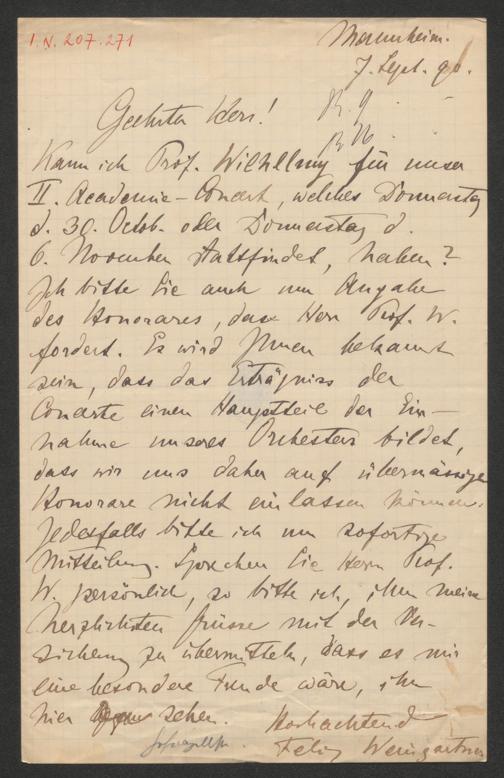 I.N. 207.271
Mannheim.
7. Sept. 90.
R. 9
Geehrter Herr!
Kann ich Prof. Wilhelmj für unser
II. Academie-Concert, welches Donnerstag
d. 30. Octob. oder Donnerstag d.
6. November stattfindet, haben?
Ich bitte Sie auch um Angabe
des Honorares, das Herr Prof. W.
fordert. Es wird Ihnen bekannt
sein, dass das Erträgniss der
Concerte einen Hauptteil der Ein-
nahme unseres Orchesters bildet,
dass wir uns daher auf übermässige
Honorare nicht einlassen können.
Jedesfalls bitte ich um sofortige
Mitteilung. Sprechen Sie Herrn Prof.
W. persönlich, so bitte ich, ihm meine
herzlichsten Grüsse mit der Ver-
sicherung zu übermitteln, dass es mir
eine besondere Freude wäre, ihn
hier zu sehen.
Hochachtend
Felix Weingartner